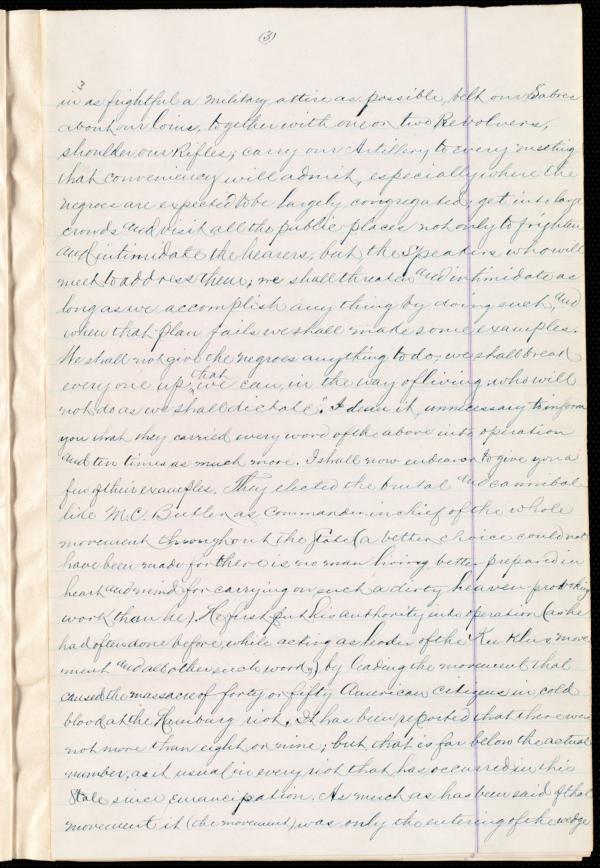 (3)
3
in as frightful a military attire as possible, belt our Sabres
about our loins, together with one or two Revolvers,
shoulder our Rifles; carry our Artillery to every meeting
that conveniency will admit, especially where the
negroes are expected to be largely congregated; get into large
crowds and visit all the public places not only to frighten
and intimidate the hearers, but the Speakers who will
meet to address them; we shall threaten and intimidate as
long as we accomplish any thing by doing such, and
when that plan fails we shall make some examples.
We shall not give the negroes anything to do; we shall break
every one up that we can, in the way of living, who will
not do as we shall dictate". I deem it unnecessary to inform
you that they carried every word of the above into operation
and ten times as much more. I shall now endeavor to give you a
few of their examples. They elected the brutal and cannibal
like M.C. Butler as Commander in chief of the whole
movement throughout the State (a better choice could not
have been made for there is no man living better prepared in
heart and mind for carrying on such a dirty heaven provoking
work than he). He first put his authority into operation (as he
had often done before, while acting as leader of the Ku Klux move
ment and all other such works) by leading the movement that
caused the massacre of forty or fifty American citizens in cold
blood at the Hamburg riot. It has been reported that there were
not more than eight or nine; but that is far below the actual
number, as it usual in every riot that has occurred in this
State since emancipation. As much as has been said of that
movement it (the movement) was only the entering of the wedge